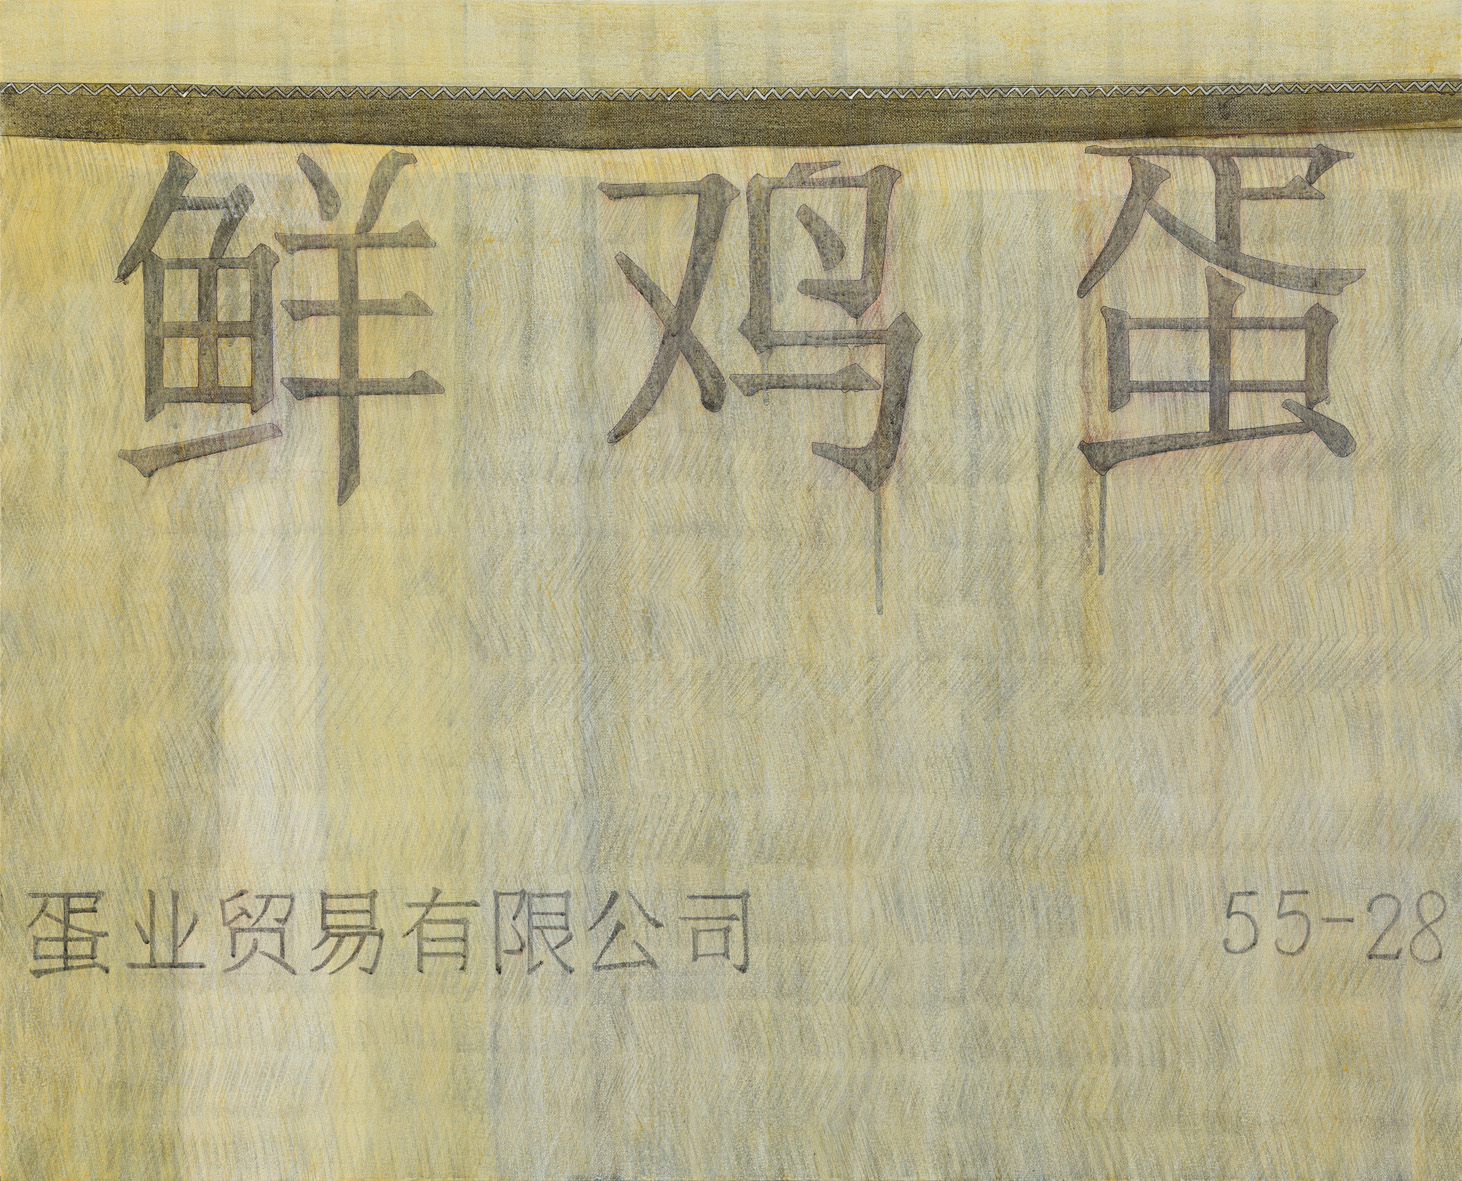 鲜鸡蛋
蛋业贸易有限公司 55-28